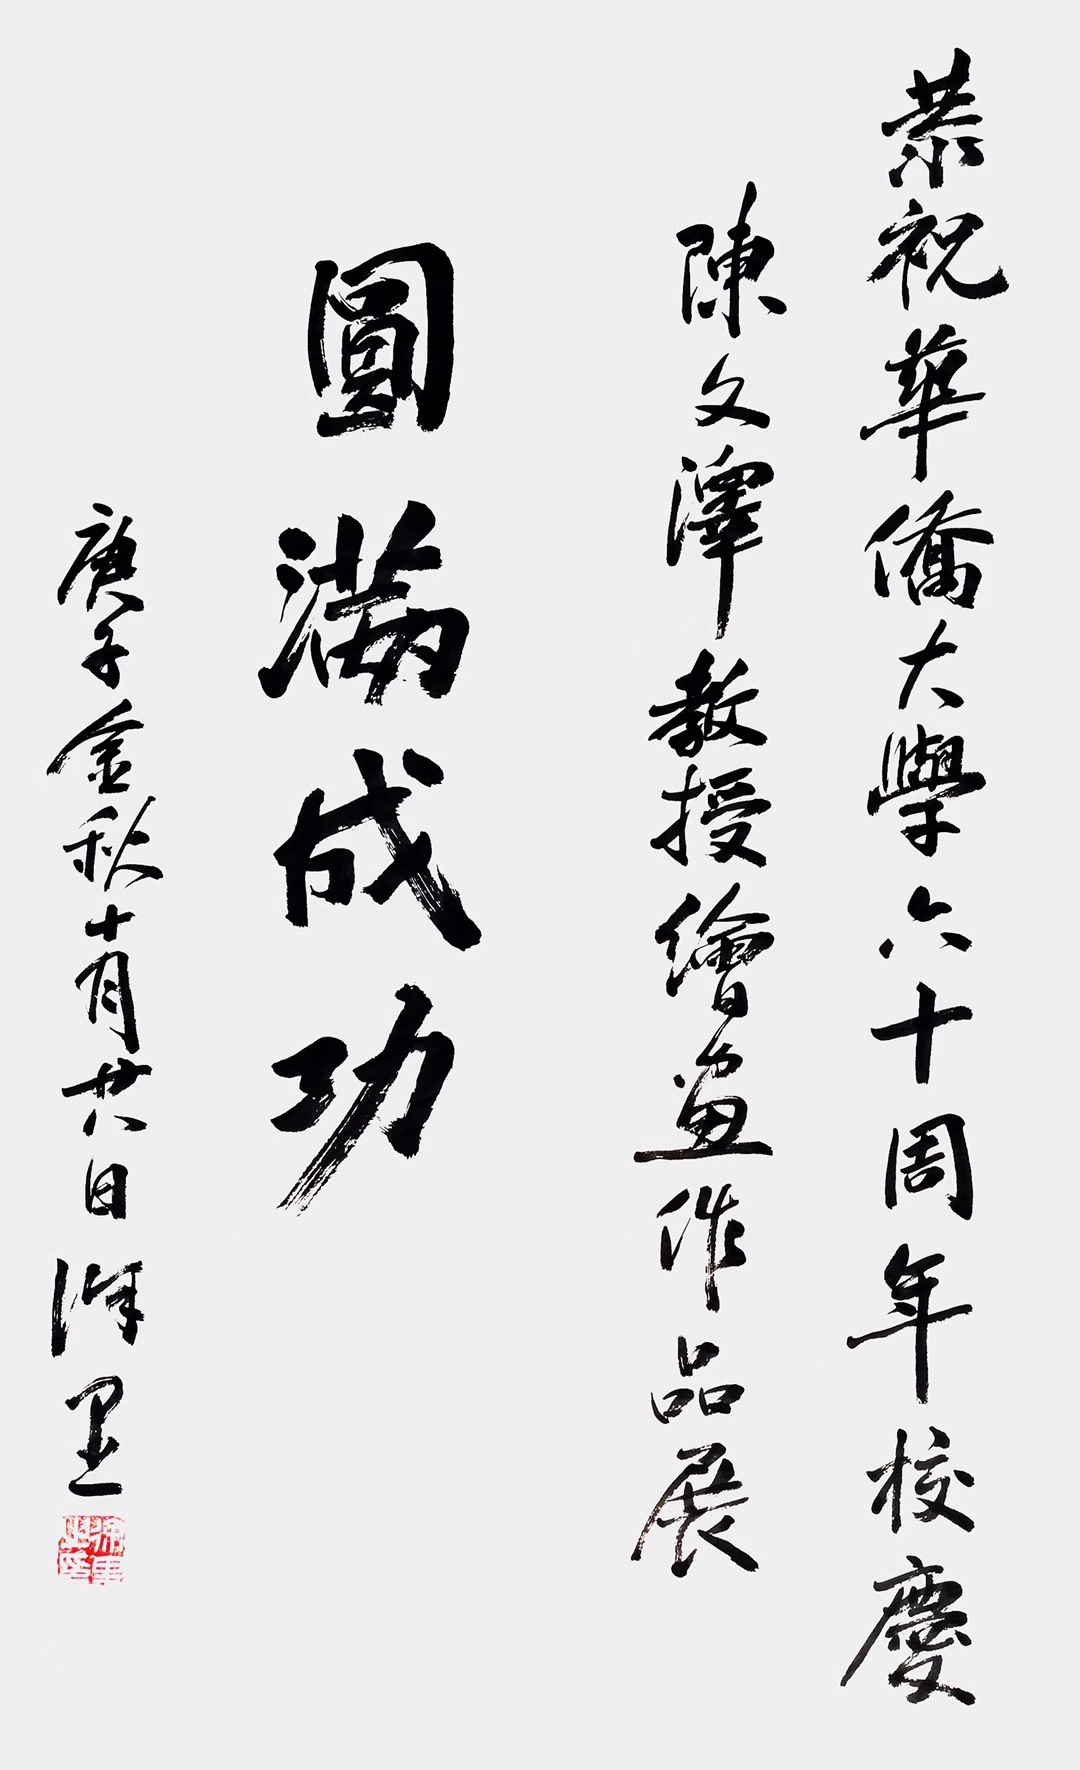 恭祝華僑大學六十周年校慶
陳文澤教授繪畫作品展
圓滿成功
庚子金秋十月廿八日徐里
徐里之印